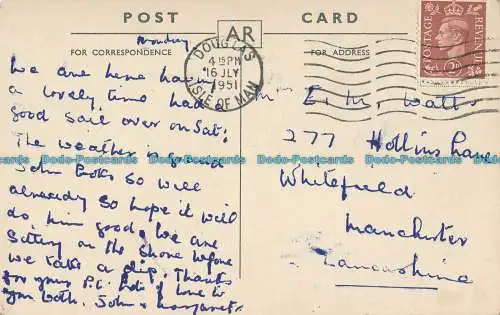 POST CARD
AR
FOR CORRESPONDENCE
FOR ADDRESS
Monday
We are here having
a lovely time had
good sail over on Sat:
The weather is good
John looks so well
already so hope it will
do him good, we are
sitting on the shore before
we take a dip. Thanks
for your P.C. love to
you both. John & Margaret
DOUGLAS
4 15 PM
16 JLY
1951
ISLE OF MAN
POSTAGE
REVENUE
E. M. Watts
277 Hollins Lane
Whitefield
Manchester
Lancashire
Dodo-Postcards Dodo-Postcards Dodo-Postcards Dodo-Postcards
Dodo-Postcards Dodo-Postcards Dodo-Postcards Dodo-Postcards